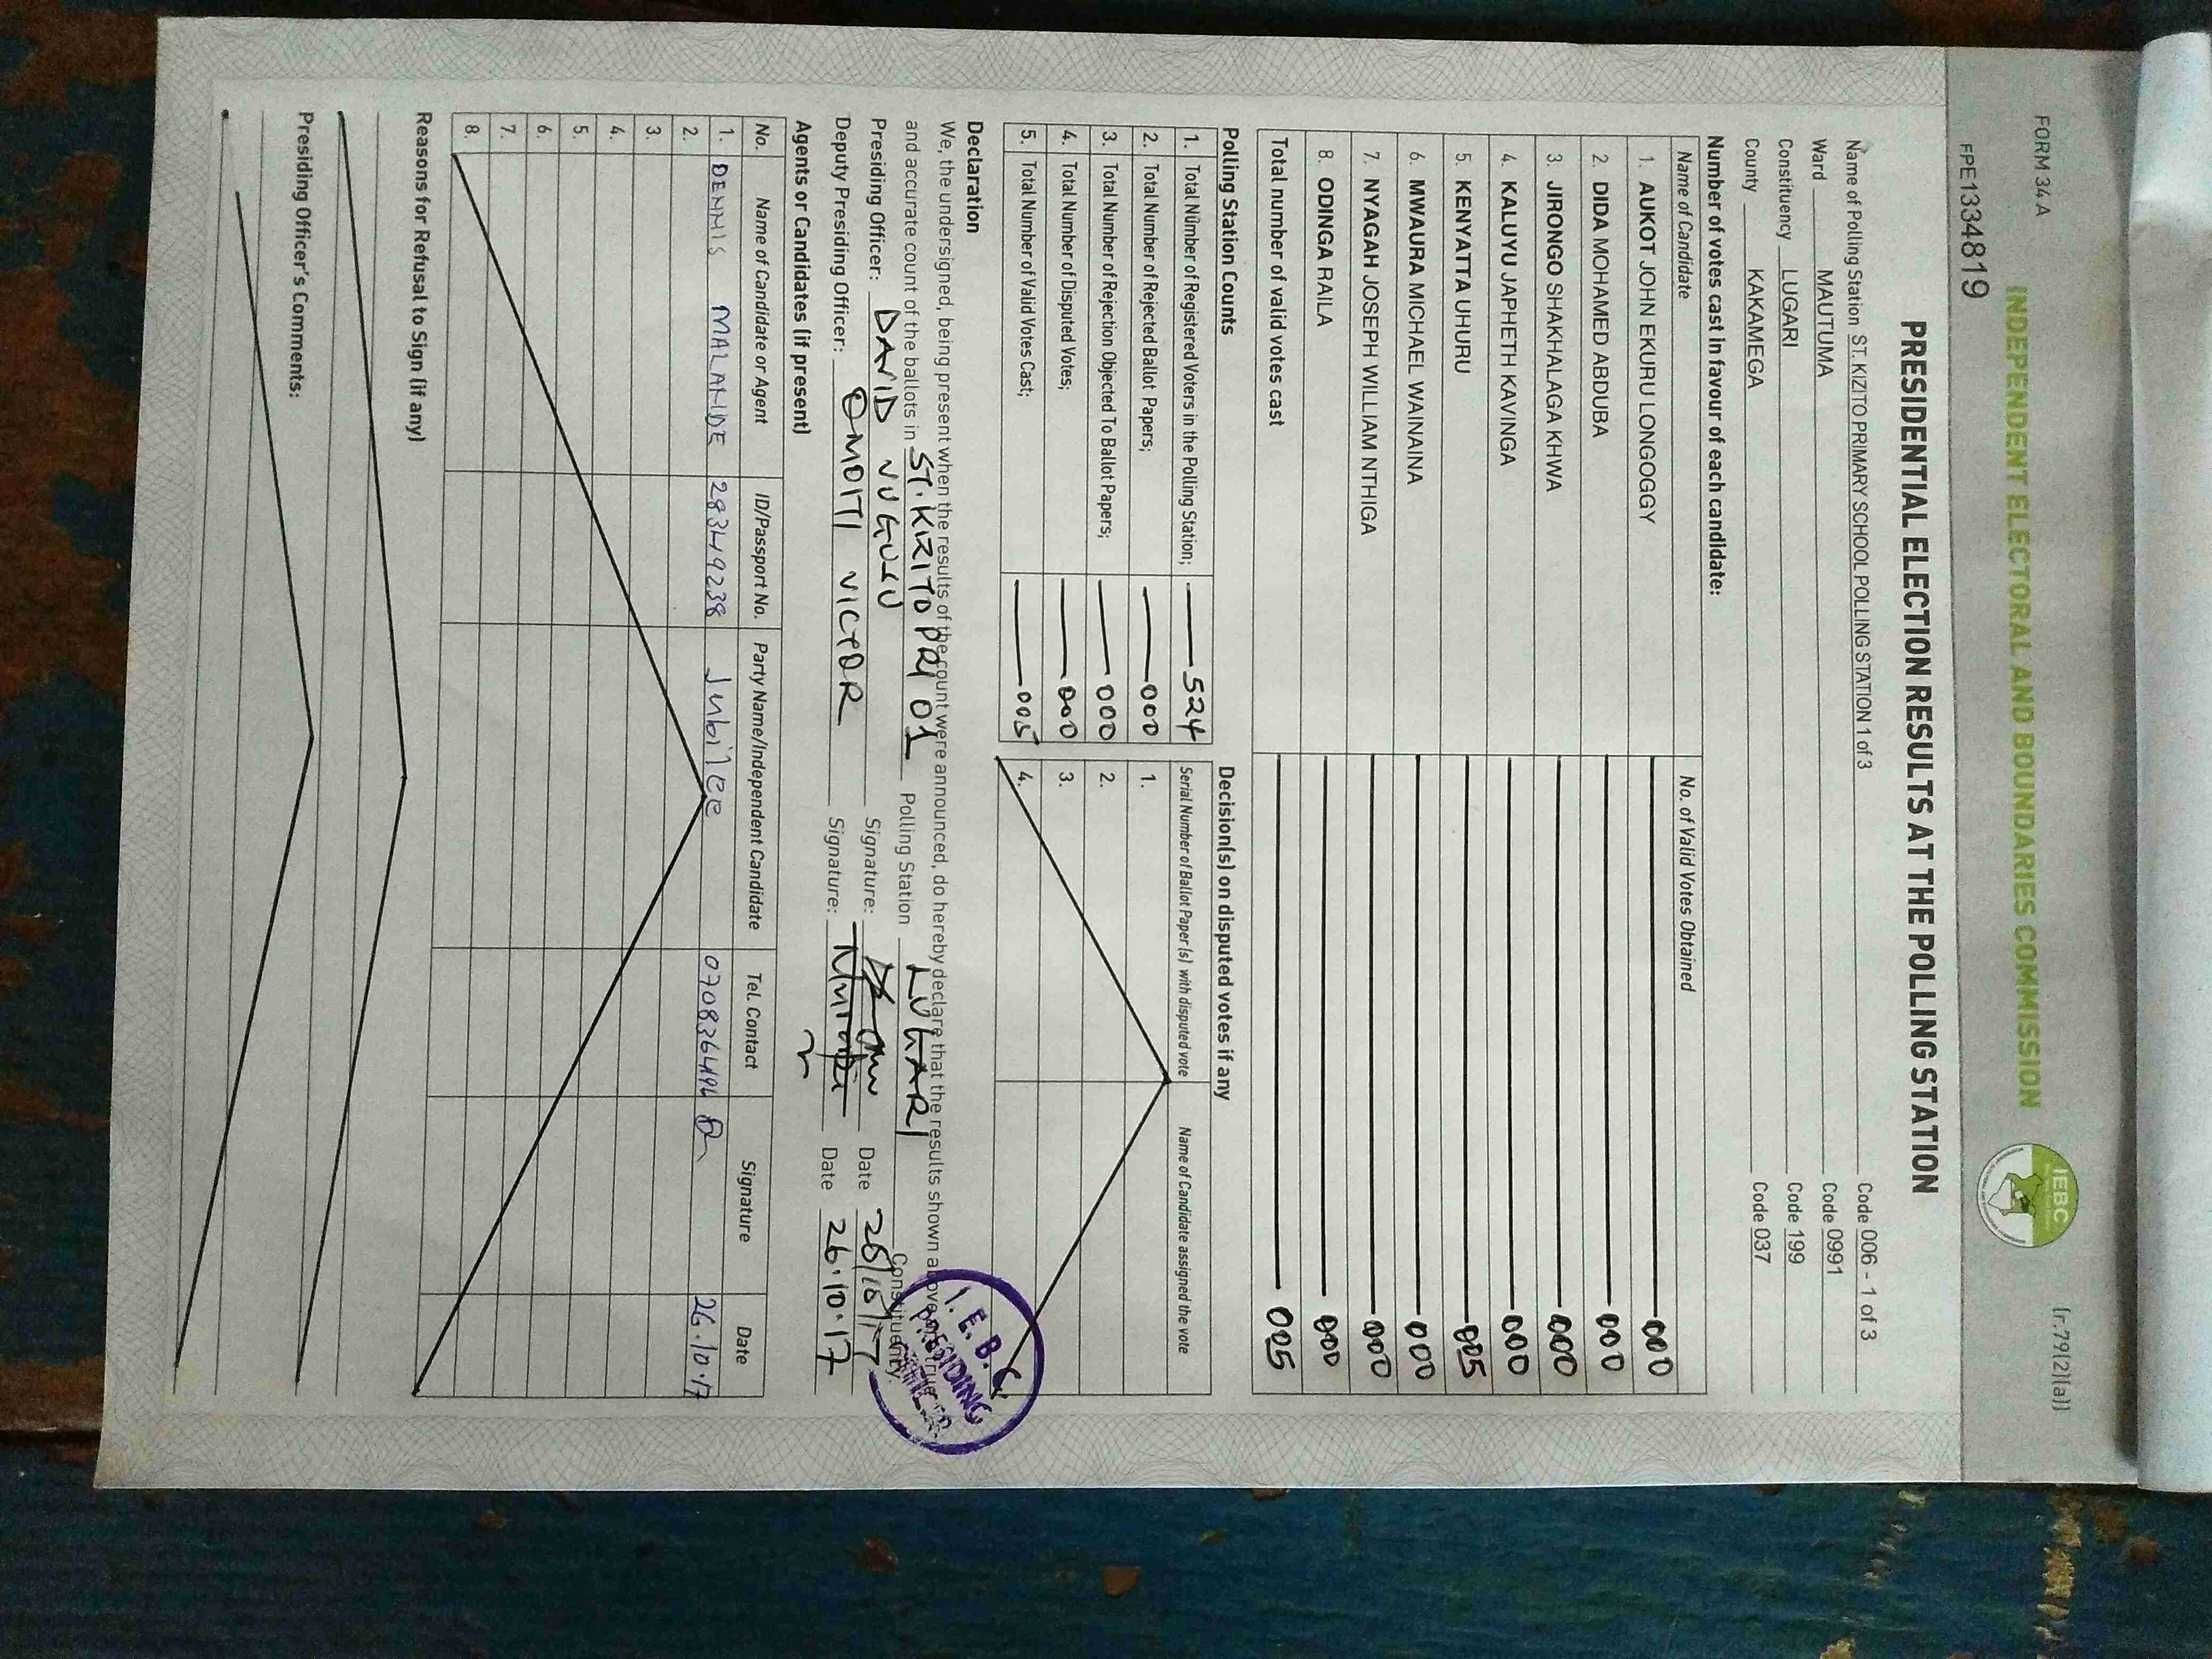 FORM 34 A
(r.79(2)(a))
INDEPENDENT ELECTORAL AND BOUNDARIES COMMISSION
IEBC
FPE1334819
PRESIDENTIAL ELECTION RESULTS AT THE POLLING STATION
Name of Polling Station ST. KIZITO PRIMARY SCHOOL POLLING STATION 1 of 3 Code 006 - 1 of 3
Ward MAUTUMA Code 0991
Constituency LUGARI Code 199
County KAKAMEGA Code 037
Number of votes cast in favour of each candidate:
Name of Candidate No. of Valid Votes Obtained
1. AUKOT JOHN EKURU LONGOGGY 000
2. DIDA MOHAMED ABDUBA 000
3. JIRONGO SHAKHALAGA KHWA 000
4. KALUYU JAPHETH KAVINGA 000
5. KENYATTA UHURU 005
6. MWAURA MICHAEL WAINAINA 000
7. NYAGAH JOSEPH WILLIAM NTHIGA 000
8. ODINGA RAILA 000
Total number of valid votes cast 005
Polling Station Counts
1. Total Number of Registered Voters in the Polling Station; 524
2. Total Number of Rejected Ballot Papers; 000
3. Total Number of Rejection Objected To Ballot Papers; 000
4. Total Number of Disputed Votes; 000
5. Total Number of Valid Votes Cast; 005
Decision(s) on disputed votes if any
Serial Number of Ballot Paper (s) with disputed vote Name of Candidate assigned the vote
1.
2.
3.
4.
Declaration
We, the undersigned, being present when the results of the count were announced, do hereby declare that the results shown above are true
and accurate count of the ballots in ST. KIZITO PRI 01 Polling Station LUGARI Constituency.
Presiding Officer: DAVID Signature: Date 26/10/17
Deputy Presiding Officer: OMOITI VICTOR Signature: Date 26.10.17
I. E. B. C.
PRESIDING
OFFICER
Agents or Candidates (if present)
No. Name of Candidate or Agent ID/Passport No. Party Name/Independent Candidate Tel. Contact Signature Date
1. DENNIS MALANDE 28349238 Jubilee 26.10.17
2.
3.
4.
5.
6.
7.
8.
Reasons for Refusal to Sign (if any)
Presiding Officer's Comments: